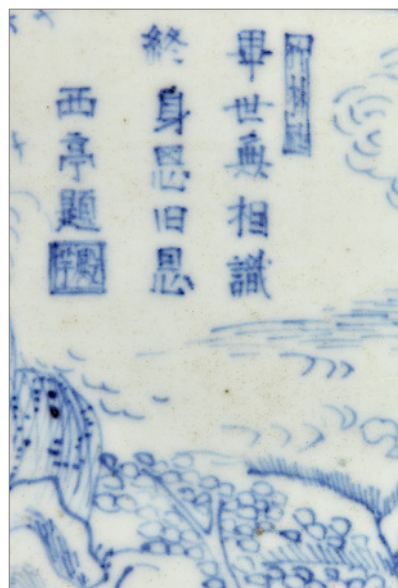 畢世無相識
終身恩旧恩
西亭題